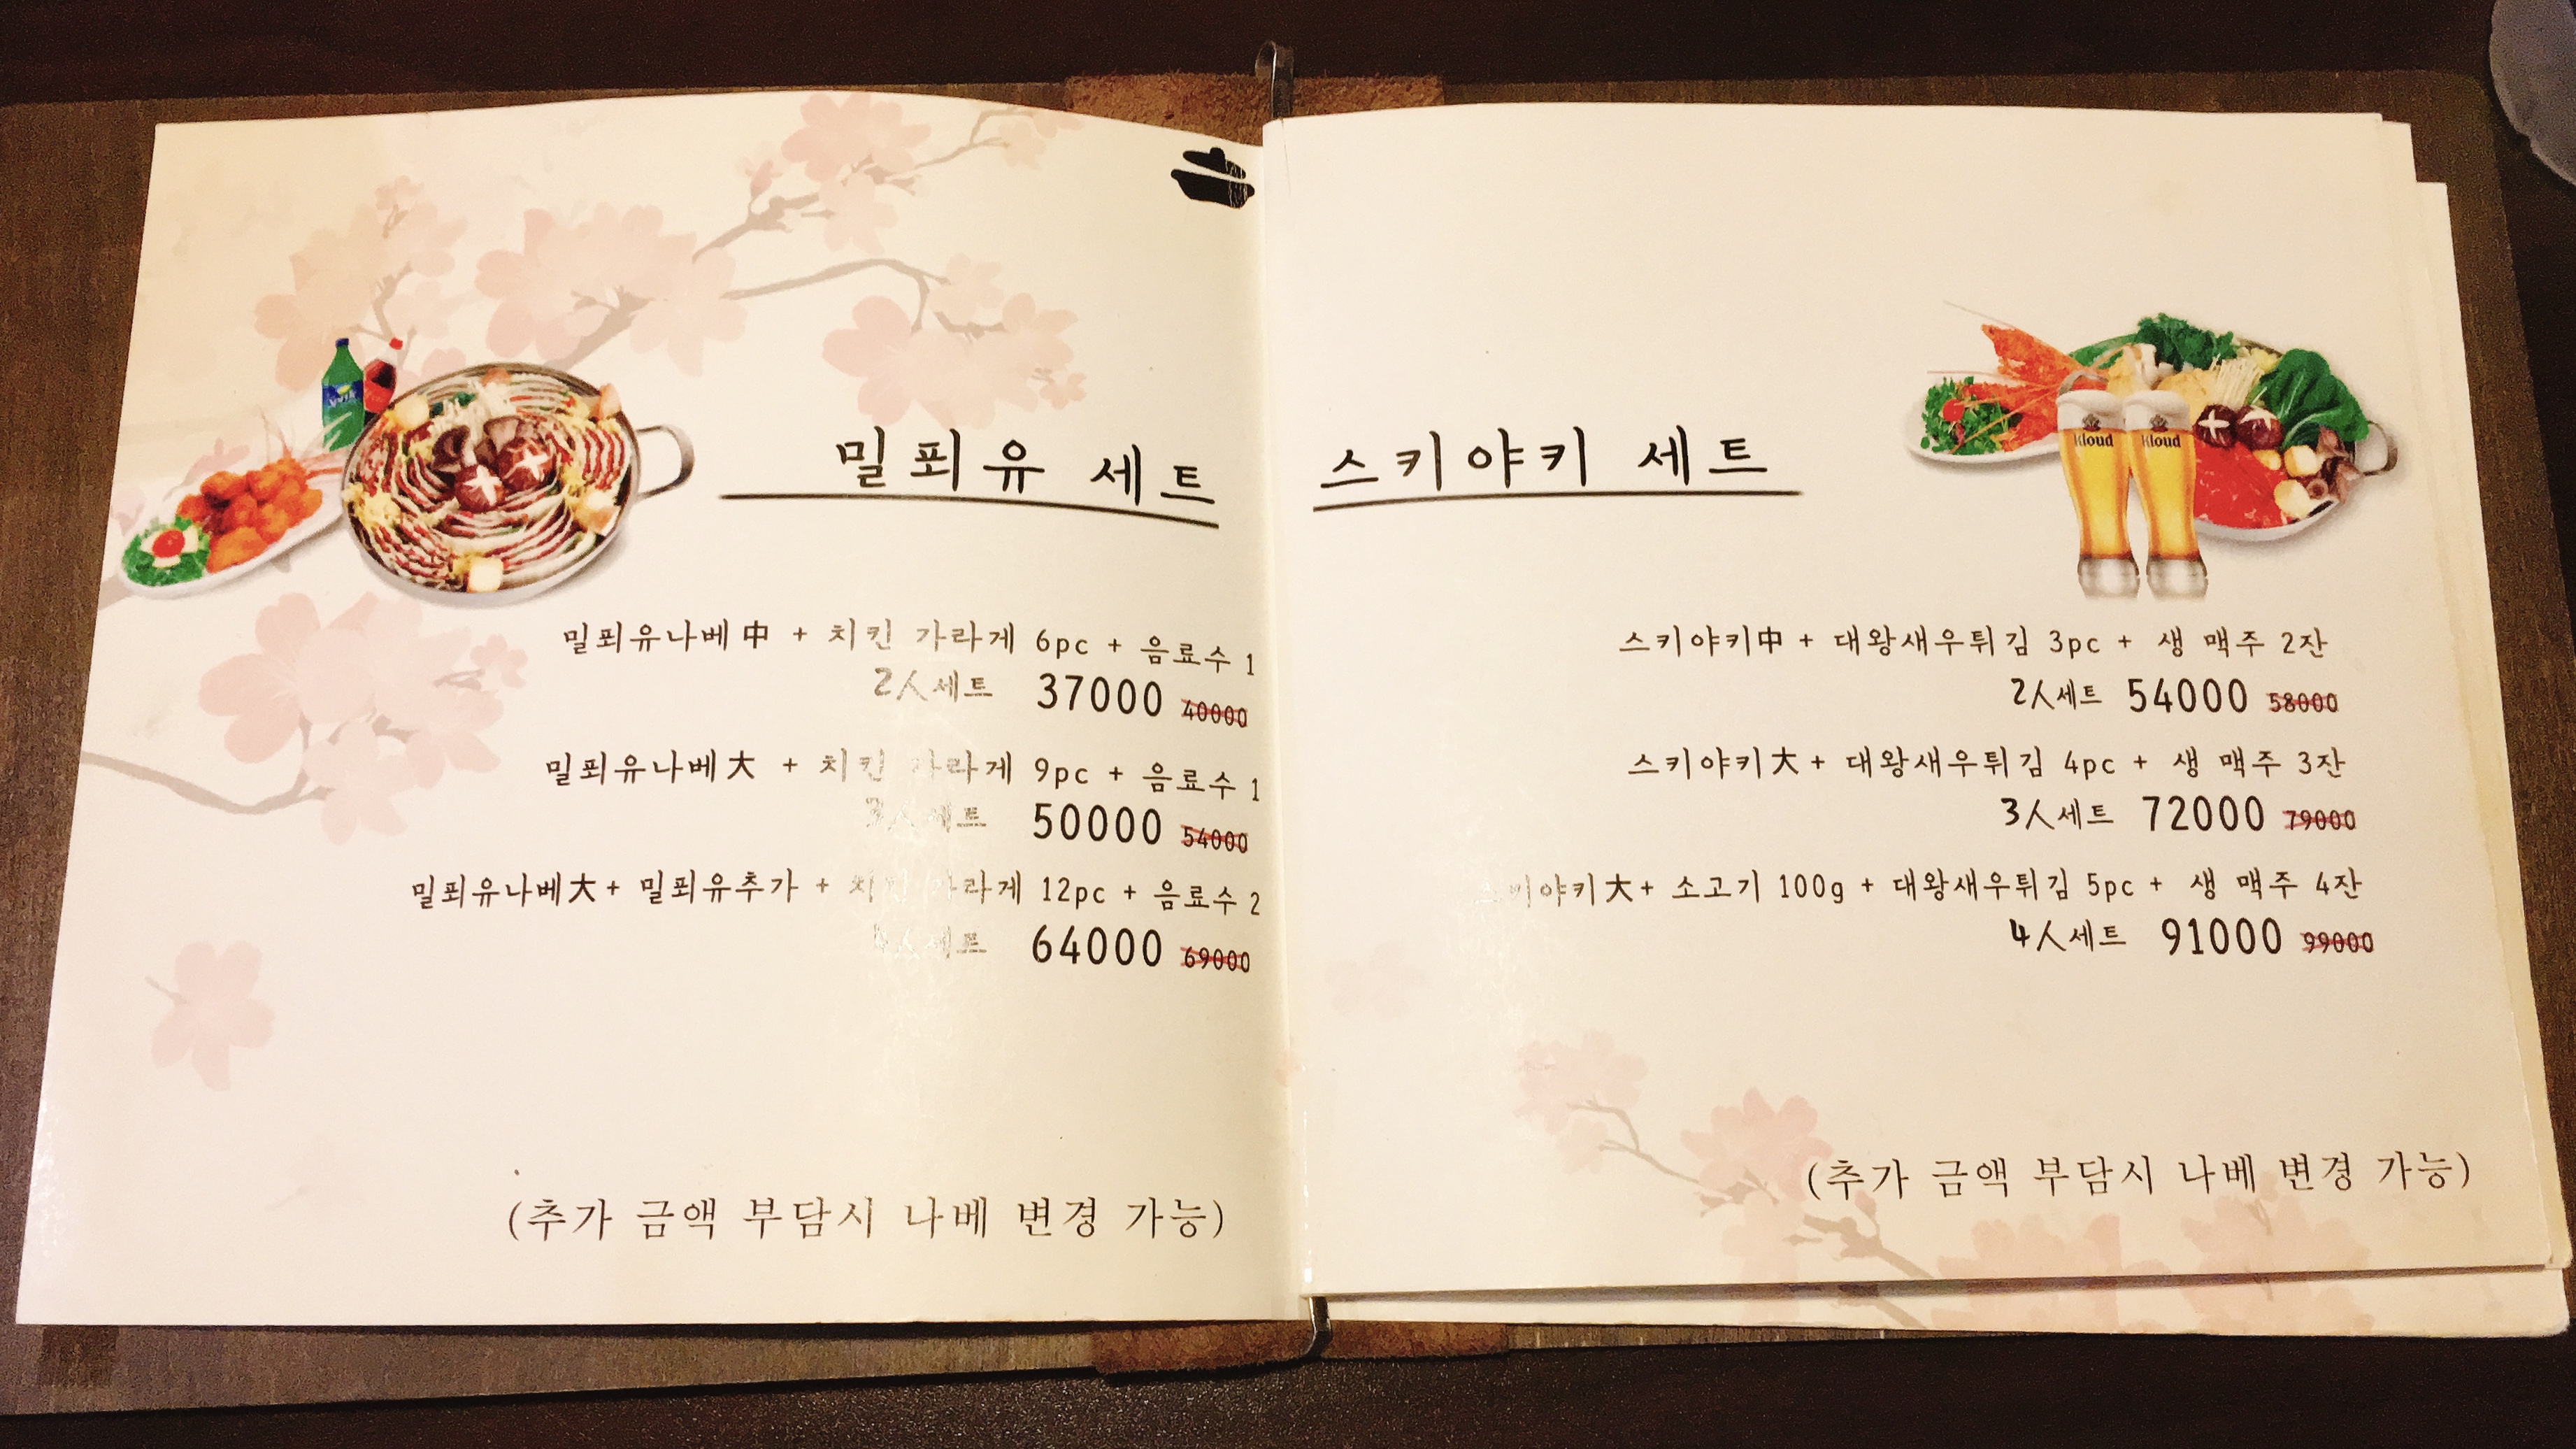 밀푀유 세트
밀푀유나베中 + 치킨 가라게 6pc + 음료수 1
2人세트 37000 40000
밀푀유나베大 + 치킨 가라게 9pc + 음료수 1
3人세트 50000 54000
밀푀유나베大+ 밀푀유추가 + 치킨 가라게 12pc + 음료수 2
4人세트 64000 69000
(추가 금액 부담시 나베 변경 가능)
스키야키 세트
kloud kloud
스키야키中 + 대왕새우튀김 3pc + 생 맥주 2잔
2人세트 54000 58000
스키야키大+ 대왕새우튀김 4pc + 생 맥주 3잔
3人세트 72000 79000
스키야키大+ 소고기 100g + 대왕새우튀김 5pc + 생 맥주 4잔
4人세트 91000 99000
(추가 금액 부담시 나베 변경 가능)